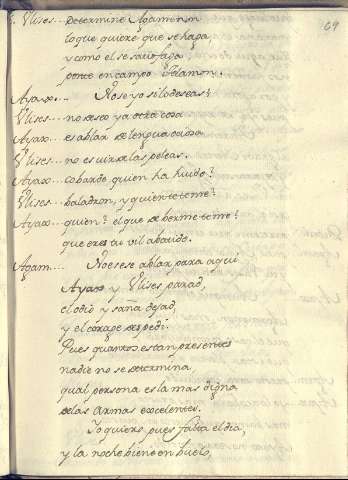 69
Vlises... Determine Agamenon
lo que quiere que se haga,
y como el se satisfaga,
ponte en campo Telamon.
Ayax.... No se yo si lo deseas?
Vlises... no deseo ya otra cosa
Ayax... es ablar de lengua ociosa
Vlises.. no es uir de las peleas.
Ayax... cobarde quien ha huido?
Vlises.. baladron, y quien te teme?
Ayax... quien? el que de berme teme?
que eres tu vil abatido.
Agam.... No es ese ablar para aqui
Ayax y Vlises parad,
el odio y saña dejad,
y el corage despedi.
Pues quantos estan presentes
nadie no se determina
qual persona es la mas digna
de las armas excelentes.
Yo quiero, pues falta el dia,
y la noche biene en buelo,